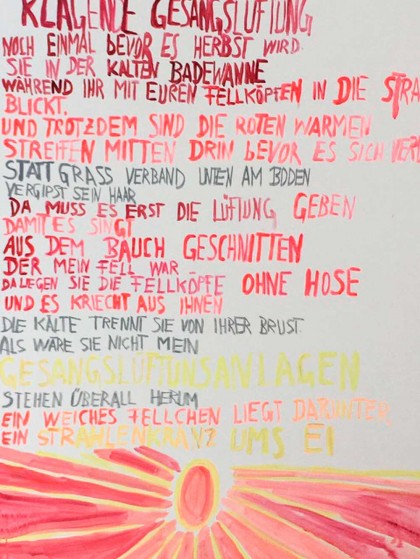 KLAGENDE GESANGSLÜFTUNG
NOCH EINMAL BEVOR ES HERBST WIRD
SIE IN DER KALTEN BADEWANNE
WÄHREND IHR MIT EUREN FELLKÖPFEN IN DIE STRA
BLICKT.
UND TROTZDEM SIND DIE ROTEN WARMEN
STREIFEN MITTEN DRIN BEVOR ES SICH VER
STATT GRASS VERBAND UNTEN AM BODEN
VERGIPST SEIN HAAR
DA MUSS ES ERST DIE LÜFTUNG GEBEN
DAMIT ES SINGT
AUS DEM BAUCH GESCHNITTEN
DER MEIN FELL WAR
DA LEGEN SIE DIE FELLKÖPFE OHNE HOSE
UND ES KRIECHT AUS IHNEN
DIE KÄLTE TRENNT SIE VON IHRER BRUST
ALS WÄRE SIE NICHT MEIN
GESANGSLÜFTUNSANLAGEN
STEHEN ÜBERALL HERUM
EIN WEICHES FELLCHEN LIEGT DARUNTER
EIN STRAHLENKRANZ UMS EI